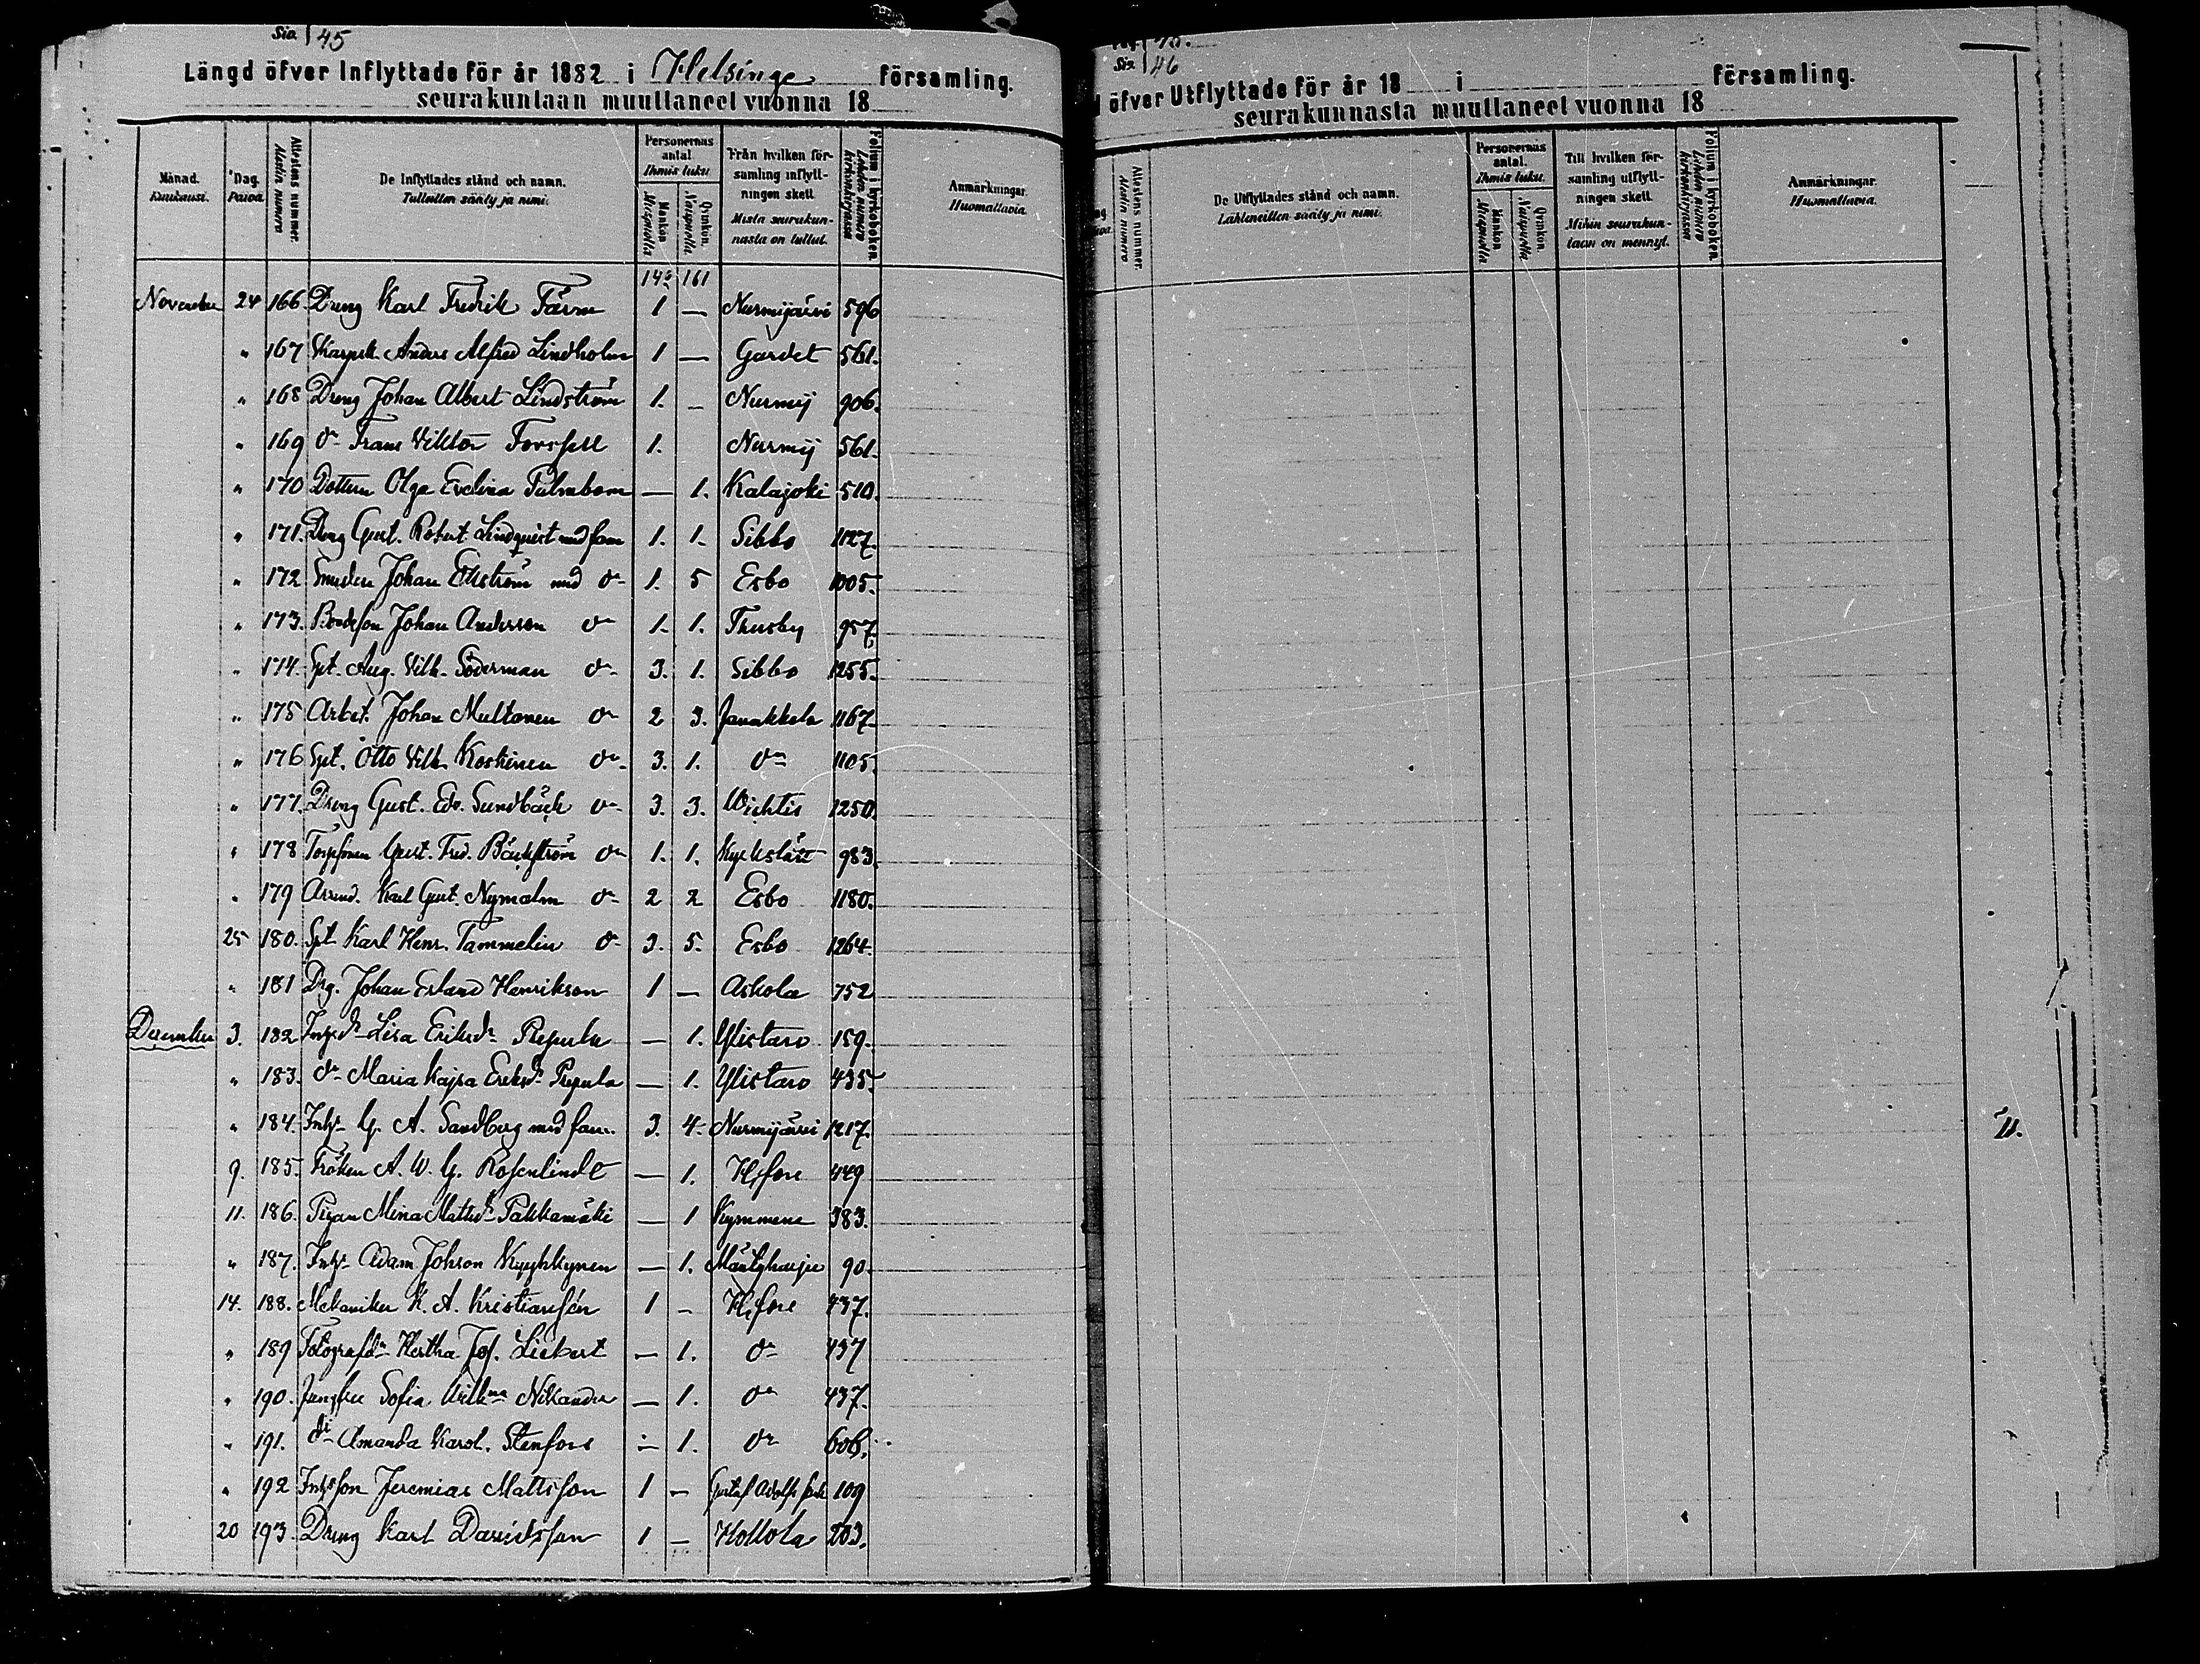 Sia. 45
Längd öfver Inflyttade för år 1882 i Helsinge församling.
seurakuntaan muuttaneet vuonna 18
Månad. Kuukausi. Dag. Päivä. Attestens nummer. Alestin numero De Inflyttades stånd och namn. Tulleitten sääty ja nimi. Personernas antal. Ihmis luku. Mankön. Miespuolia Qvinkön. Naispuolia Från hvilken församling inflyttningen skett. Mista seurakunnasta on tullut. Folium i kyrkoboken. Lehden numero kirkonkirjassa Anmärkningar. Huomattavia.
146 161
November 24 166 Dreng Karl Fredrik Färm 1 — Nurmijärvi 596
" 167 Anders Alfred Lindholm 1 — Gardet 561.
" 168 Dreng Johan Albert Lindström 1. – Nurmij 906.
" 169 do Frans Viktor Forssell 1. Nurmij 561.
" 170 Dottern Olga Evelina Palmbom — 1. Kalajoki 510.
" 171. Dreng Gust. Robert Lindqvist med fam 1. 1. Sibbo 1127.
" 172 Smeden Johan Ekström med do 1. 5 Esbo 1005.
" 173. Bondeson Johan Anderson do 1. 1. Thusby 957.
" 174. Spt. Aug. Vilh. Söderman do 3. 1. Sibbo 1255.
" 175 Arbet. Johan Multanen do 2 3. Janakkala 1167.
" 176 Spt. Otto Vilh. Koskinen do 3. 1. do 1105.
" 177. Dreng Gust. Edv. Sundbäck do 3. 3. Wichtis 1250.
" 178 Gust. Fred. Bäckström do 1. 1. Kyrkslätt 983.
" 179 Arrend. Karl Gust. Nymalm do 2 2 Esbo 1180.
25 180. Spt. Karl Henr. Tammelin do 3. 5. Esbo 1264.
" 181 Drg. Johan Erland Henrikson 1 — Askola 752
December 3. 182 Lisa Eriksdr — 1. Ylistaro 159.
" 183. do Maria Kajsa Eriksdr — 1. Ylistaro 435.
" 184. Inhs G. A. Sandberg med fam. 3. 4. Nurmijärvi 1217.
9. 185. Fröken A. W. G. Rosenlindt — 1. H:fors 449
11. 186. Pigan Mina Mattsdr Pakkamäki — 1 Kymmene 383.
" 187. Inhs Adam Johson Kyyhkynen — 1. Mäntyharju 90.
14. 188. Mekaniker K. A. Kristiansén 1 – H:fors 437.
" 189 Hertha Jos. Liebert — 1. do 437
" 190. Jungfru Sofia Nikander — 1. do 437.
" 191. do Amanda Karol. Stenfors — 1. do 606.
" 192 Inhsson Jeremias Mattsson 1 — Gustaf Adolfs 109
20 193. Dreng Karl Davidsson 1 — Hollola 203.
Sia. 46
öfver Utflyttade för år 18 i församling.
seurakunnasta muuttaneet vuonna 18
Attestens nummer. Alestin numero De Utflyttades stånd och namn. Lähteneitten sääty ja nimi. Personernas antal. Ihmis luku. Mankön. Miespuolia Qvinkön. Naispuolia Till hvilken församling utflyttningen skett. Mihin seurakuntaan on mennyt. Folium i kyrkoboken. Lehden numero kirkonkirjassa Anmärkningar. Huomattavia.
11.